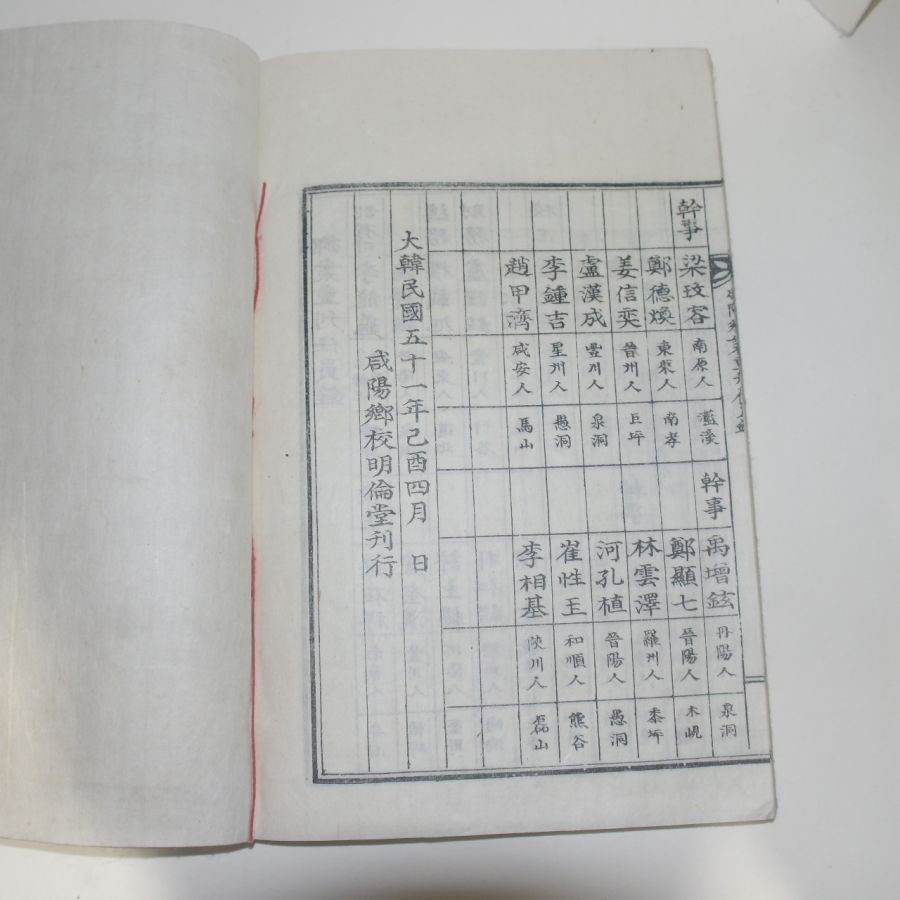 幹事
梁玟容 南原人 濫溪
鄭德煥 東萊人 南孝
姜信奕 晉州人 巨坪
盧漢成 豐川人 泉洞
李鍾吉 星州人 愚洞
趙甲濟 咸安人 馬山
幹事
禹增鉉 丹陽人 泉洞
鄭顯七 晉陽人 木峴
林雲澤 羅州人 坪
河孔植 晉陽人 愚洞
崔性玉 和順人 熊谷
李相基 陜川人 磊山
大韓民國五十一年己酉四月 日
咸陽鄉校明倫堂刊行